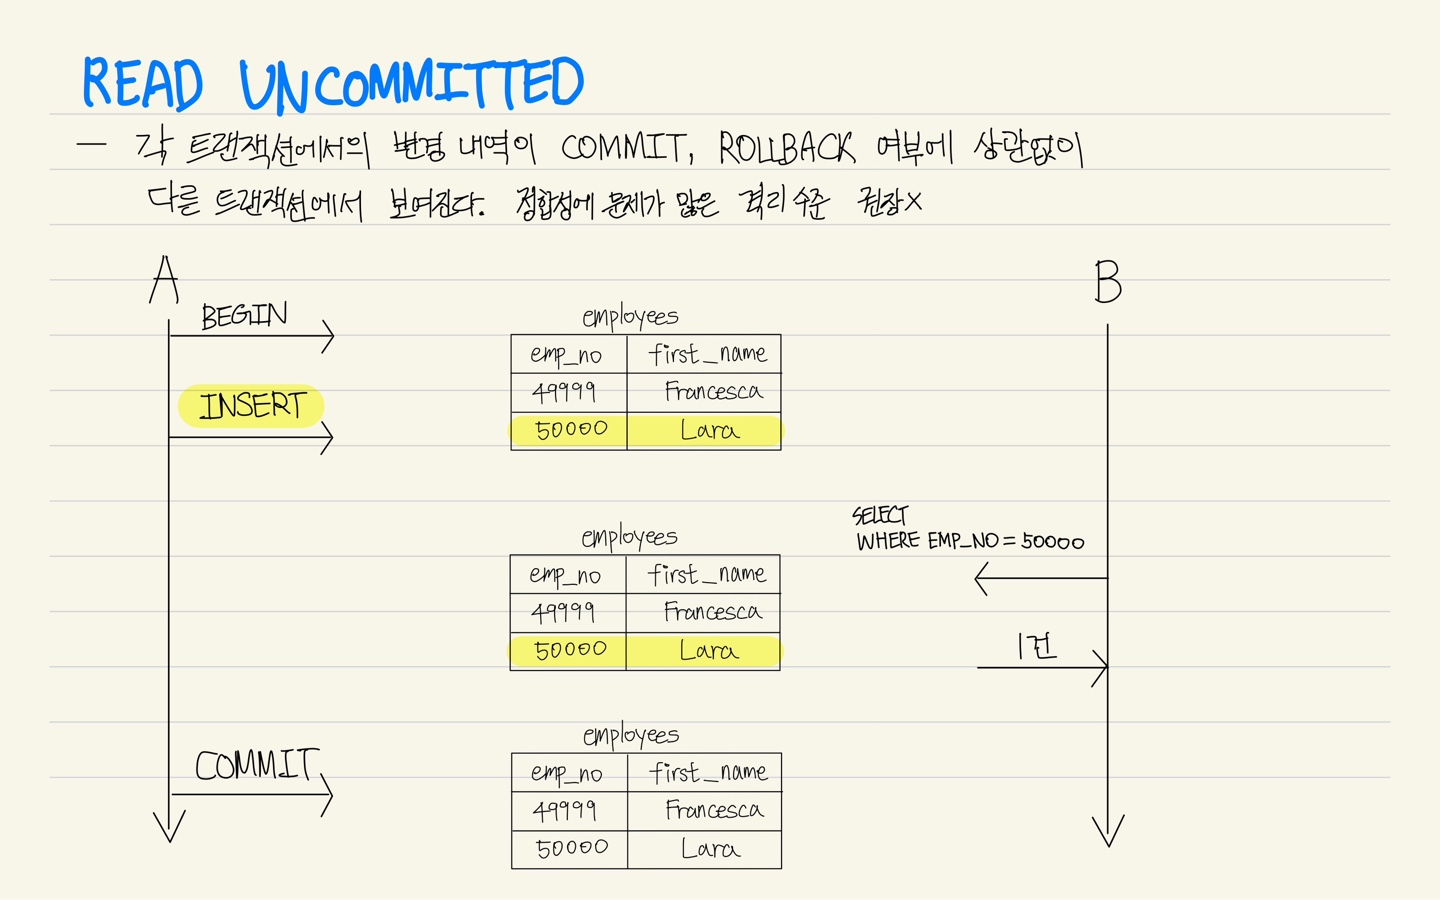 READ UNCOMMITTED
— 각 트랜잭션에서의 변경 내역이 COMMIT, ROLLBACK 여부에 상관없이
다른 트랜잭션에서 보여진다. 정합성에 문제가 많은 격리 수준 권장X
A
B
BEGIN
employees
emp_no first_name
49999 Francesca
INSERT
50000 Lara
SELECT
WHERE EMP_NO = 50000
employees
emp_no first_name
49999 Francesca
50000 Lara
1건
COMMIT
employees
emp_no first_name
49999 Francesca
50000 Lara